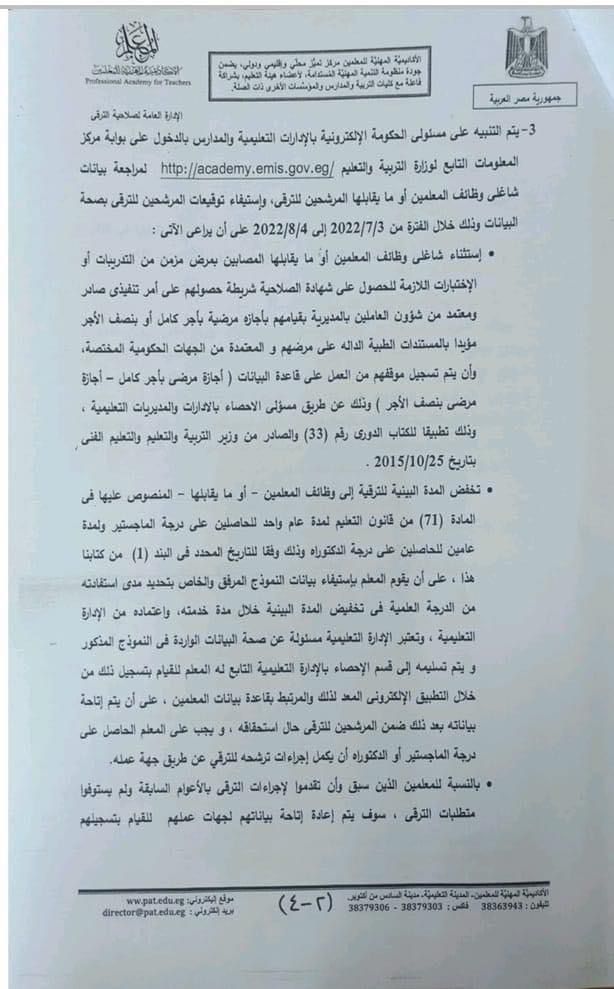 المعلم
الأكاديمية المهنية للمعلمين
Professional Academy for Teachers
الأكاديميّة المهنيّة للمعلمين مركز تميّز محلّي وإقليمي ودولي، يضمن
جودة منظومة التنمية المهنيّة المُستدامة، لأعضاء هيئة التعليم، بشراكة
فاعلة مع كليات التربية والمدارس والمؤسّسات الأخرى ذات الصلة.
جمهورية مصر العربية
الإدارة العامة لصلاحية الترقى
3- يتم التنبيه على مسئولى الحكومة الإلكترونية بالإدارات التعليمية والمدارس بالدخول على بوابة مركز
المعلومات التابع لوزارة التربية والتعليم http://academy.emis.gov.eg/ لمراجعة بيانات
شاغلى وظائف المعلمين أو ما يقابلها المرشحين للترقى، وإستيفاء توقيعات المرشحين للترقى بصحة
البيانات وذلك خلال الفترة من 2022/7/3 إلى 2022/8/4 على أن يراعى الآتى :
• إستثناء شاغلى وظائف المعلمين أو ما يقابلها المصابين بمرض مزمن من التدريبات أو
الإختبارات اللازمة للحصول على شهادة الصلاحية شريطة حصولهم على أمر تنفيذى صادر
ومعتمد من شؤون العاملين بالمديرية بقيامهم بأجازه مرضية بأجر كامل أو بنصف الأجر
مؤيدا بالمستندات الطبية الداله على مرضهم و المعتمدة من الجهات الحكومية المختصة،
وأن يتم تسجيل موقفهم من العمل على قاعدة البيانات ( أجازة مرضى بأجر كامل – أجازة
مرضى بنصف الأجر ) وذلك عن طريق مسؤلى الاحصاء بالادارات والمديريات التعليمية ،
وذلك تطبيقا للكتاب الدورى رقم (33) والصادر من وزير التربية والتعليم والتعليم الفنى
بتاريخ 2015/10/25 .
• تخفض المدة البينية للترقية إلى وظائف المعلمين – أو ما يقابلها – المنصوص عليها فى
المادة (71) من قانون التعليم لمدة عام واحد للحاصلين على درجة الماجستير ولمدة
عامين للحاصلين على درجة الدكتوراه وذلك وفقا للتاريخ المحدد فى البند (1) من كتابنا
هذا ، على أن يقوم المعلم بإستيفاء بيانات النموذج المرفق والخاص بتحديد مدى استفادته
من الدرجة العلمية فى تخفيض المدة البينية خلال مدة خدمته، واعتماده من الإدارة
التعليمية ، وتعتبر الإدارة التعليمية مسئولة عن صحة البيانات الواردة فى النموذج المذكور
و يتم تسليمه إلى قسم الإحصاء بالإدارة التعليمية التابع له المعلم للقيام بتسجيل ذلك من
خلال التطبيق الإلكترونى المعد لذلك والمرتبط بقاعدة بيانات المعلمين ، على أن يتم إتاحة
بياناته بعد ذلك ضمن المرشحين للترقى حال استحقاقه ، و يجب على المعلم الحاصل على
درجة الماجستير أو الدكتوراه أن يكمل إجراءات ترشحه للترقي عن طريق جهة عمله.
• بالنسبة للمعلمين الذين سبق وأن تقدموا لإجراءات الترقى بالأعوام السابقة ولم يستوفوا
متطلبات الترقى ، سوف يتم إعادة إتاحة بياناتهم لجهات عملهم للقيام بتسجيلهم
الأكاديميّة المهنيّة للمعلمين- المدينة التعليميّة- مدينة السادس من أكتوبر.
تليفون: 38363943 فاكس: 38379303 - 38379306
(٢-٤)
موقع إليكتروني: ww.pat.edu.eg
بريد إليكتروني: director@pat.edu.eg